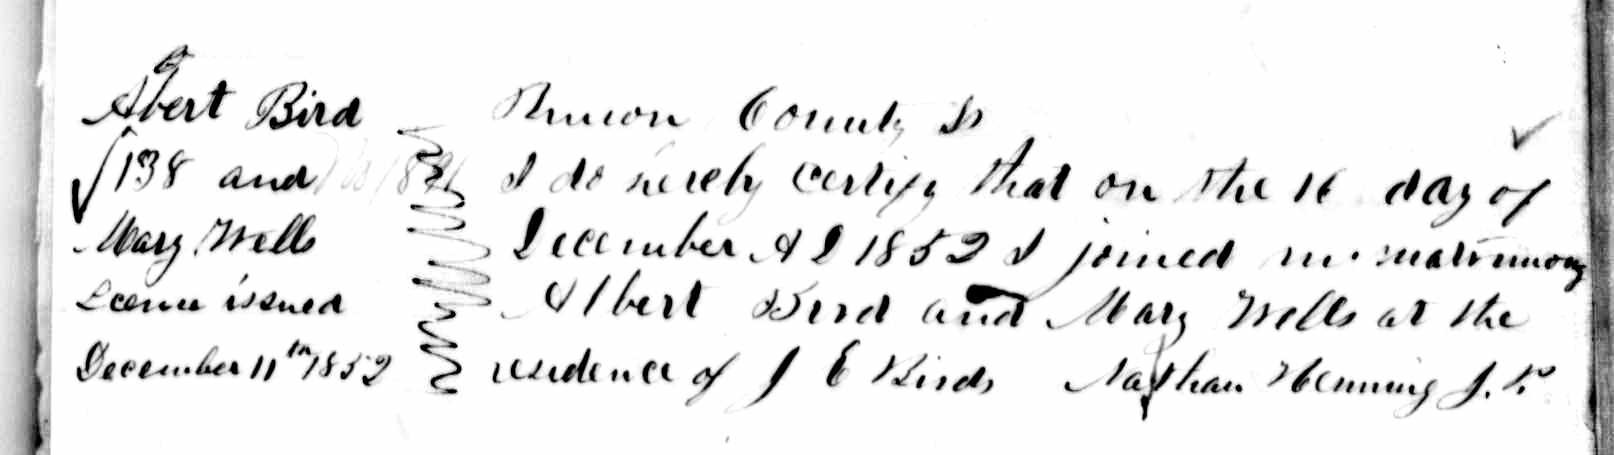 Albert Bird
138 and
Mary Wells
Licence issued
December 11th 1852
County Ss
I do hereby certify that on the 16 day of
December A D 1852 I joined in matrimony
Albert Bird and Mary Wells at the
residence of J E Birds Nathan Henning J. P.